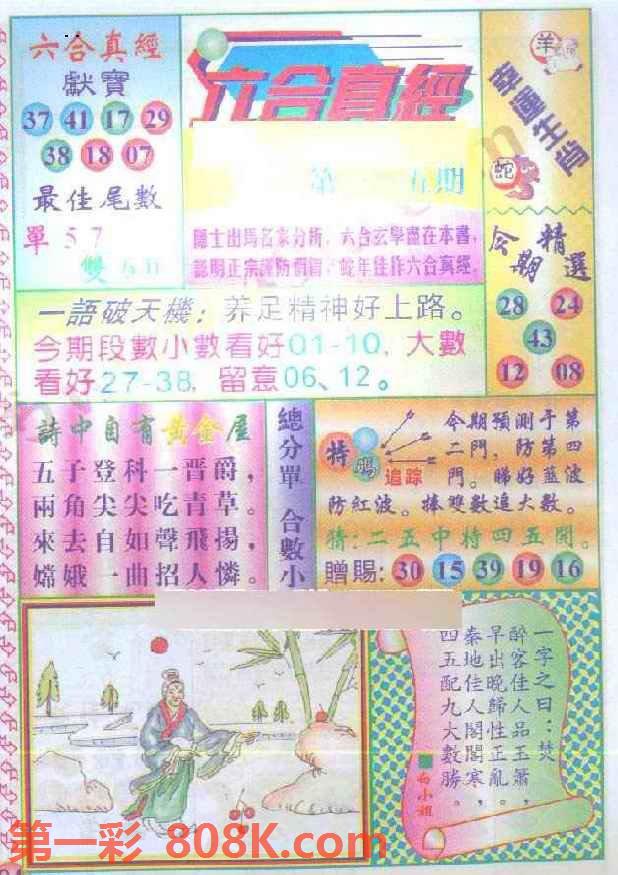 六合真經
獻寶
37 41 17 29
38 18 07
最佳尾數
單 5 7
雙
六合真經
第 五期
隱士出馬名家分析，六合玄學盡在本書，
認明正宗謹防假冒，蛇年佳作六合真經。
羊
幸運生肖
蛇
今期精選
28 24
43
12 08
一語破天機：养足精神好上路。
今期段數小數看好01-10，大數
看好27-38，留意06、12。
詩中自有黃金屋
五子登科一晋爵，
兩角尖尖吃青草。
來去自如聲飛揚，
嫦娥一曲招人憐。
總分單 合數小
特碼
追踪
今期預測于第
二門，防第四
門。睇好藍波
防紅波。捧雙數追大數。
猜:二五中特四五開。
贈賜: 30 15 39 19 16
一字之曰：焚
醉客佳人品玉簫，
早出晚歸性正亂。
秦地佳人閣閣寒，
四五配九大數勝。
白小姐
第一彩 808K.com